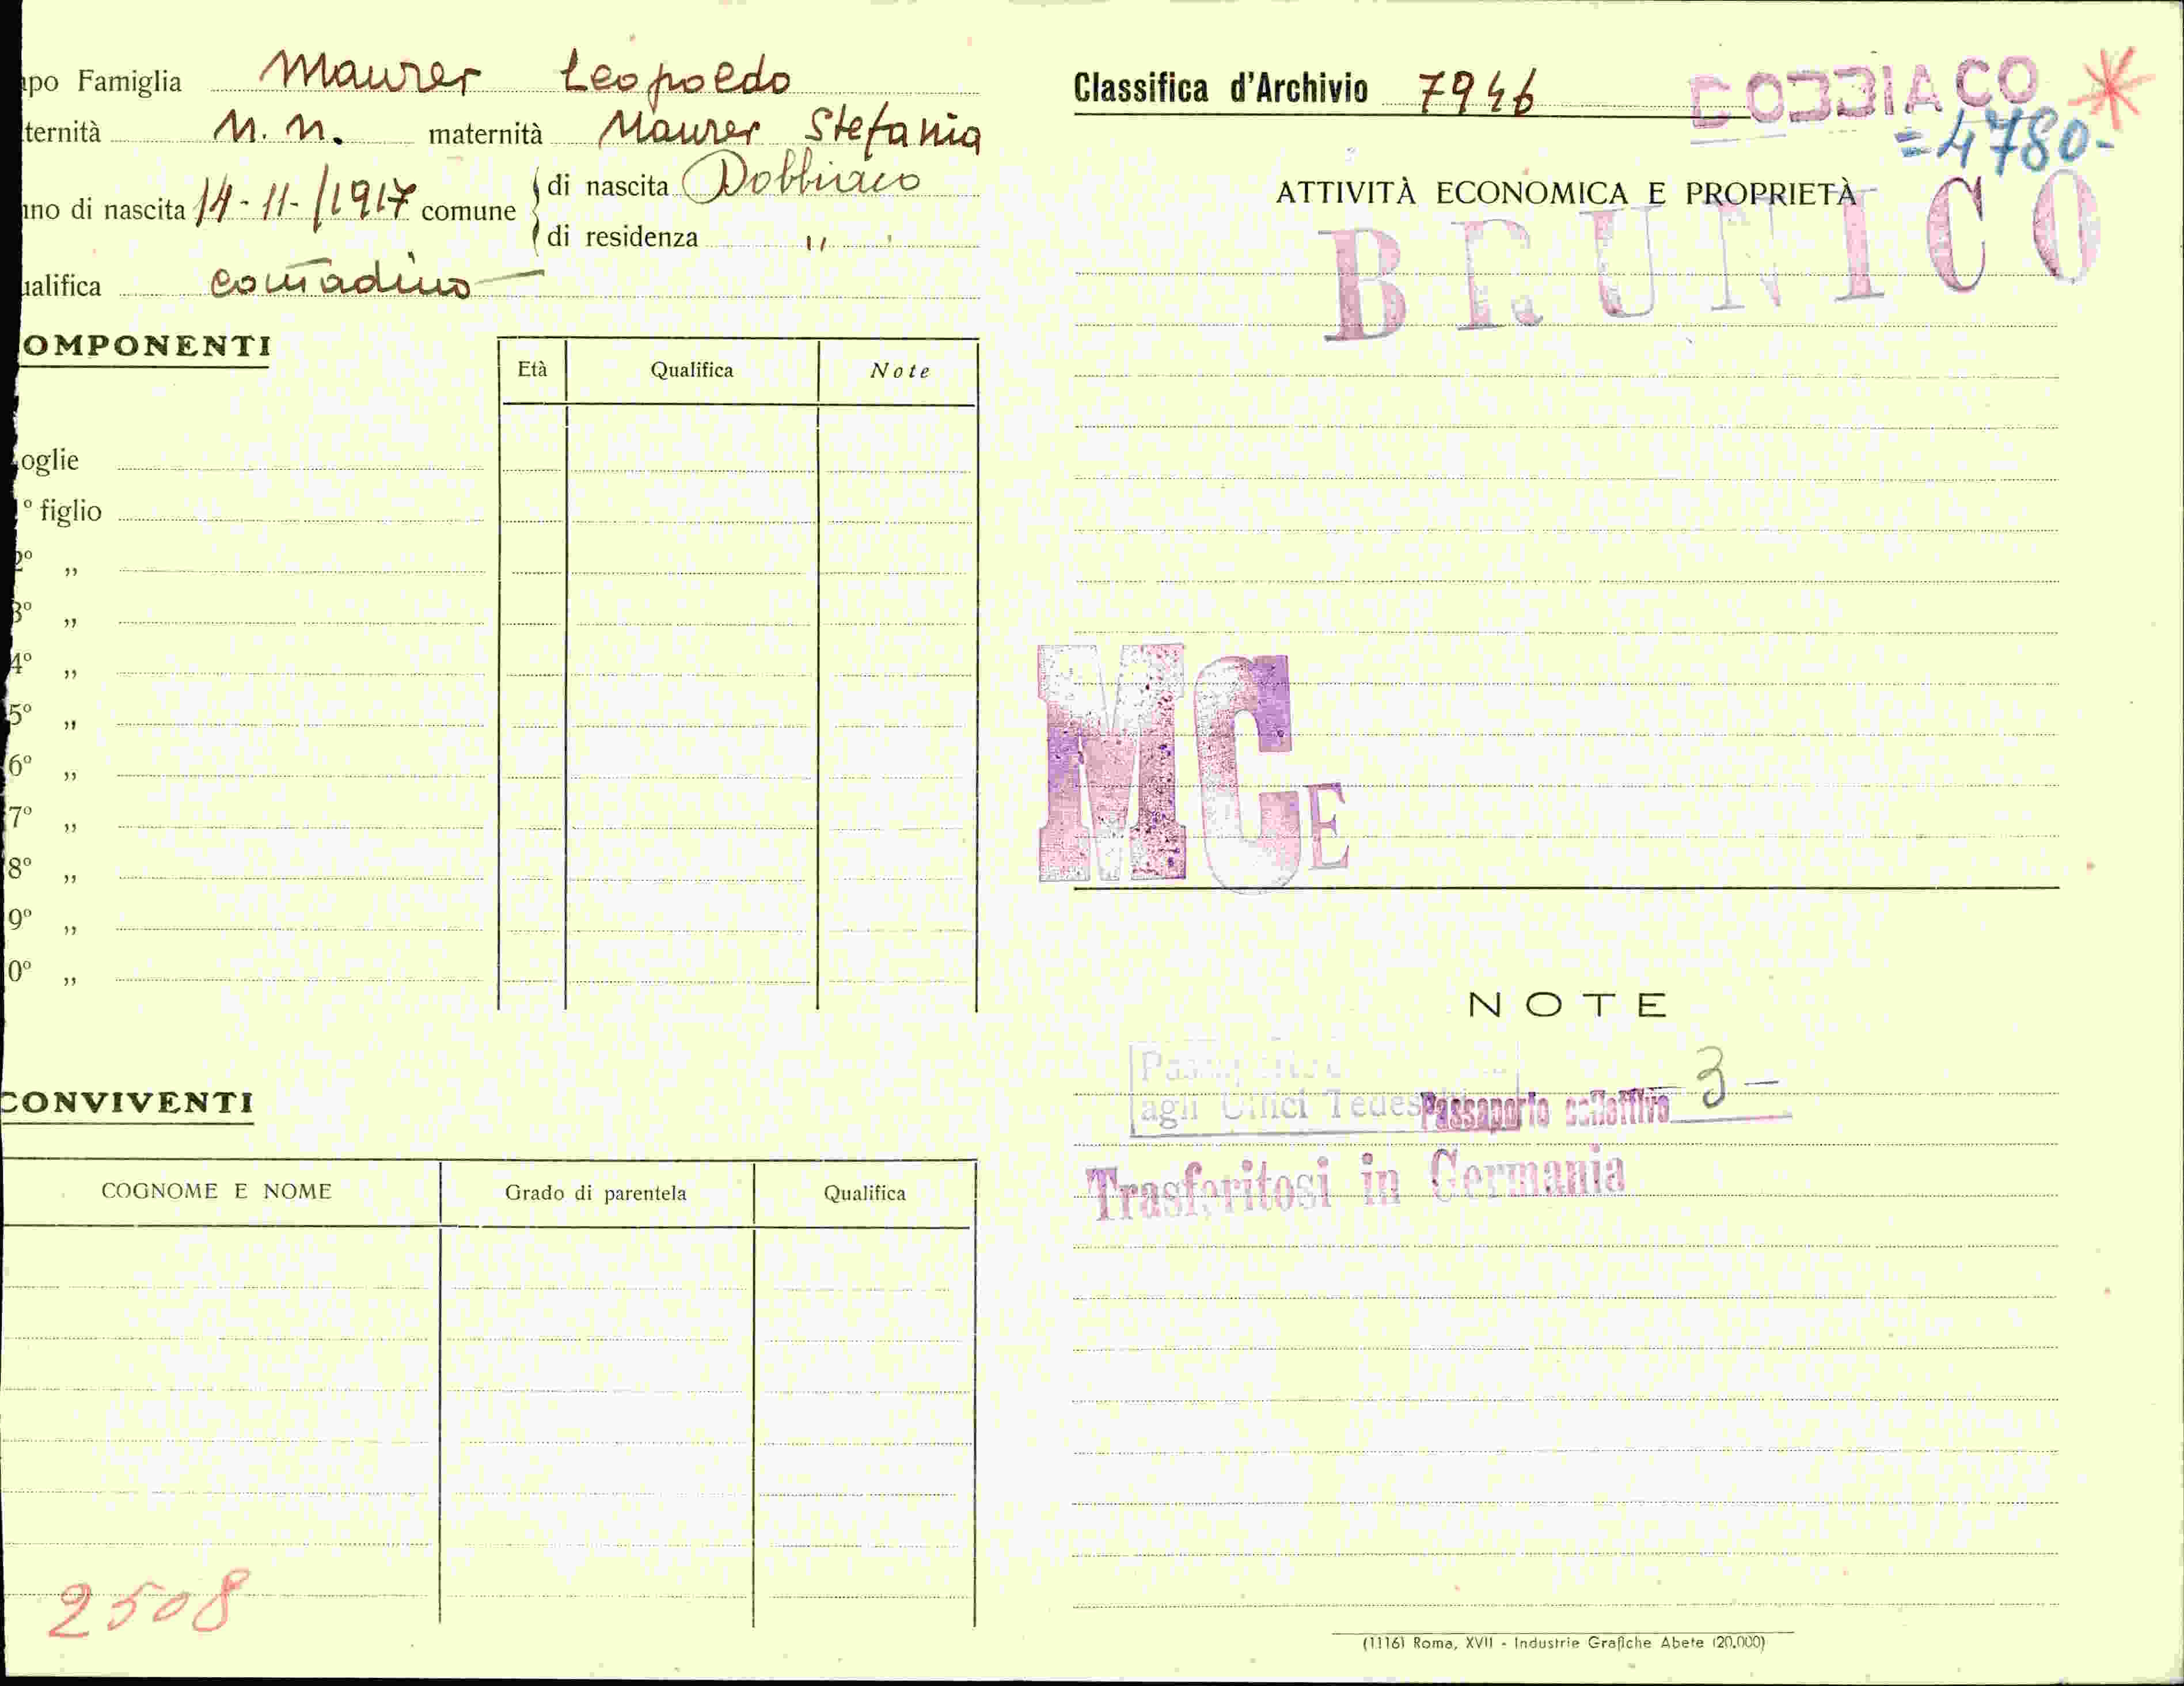 apo Famiglia Maurer Leopoldo
ternità N. N. maternità Maurer Stefania
nno di nascita 14-11-1917 comune di nascita Dobbiaco
di residenza "
ualifica contadino
OMPONENTI
Età Qualifica Note
oglie
° figlio
2° "
3° "
4° "
5° "
6° "
7° "
8° "
9° "
0° "
CONVIVENTI
COGNOME E NOME Grado di parentela Qualifica
2508
Classifica d'Archivio 7946
DOBBIACO
=4780-
ATTIVITÀ ECONOMICA E PROPRIETÀ
BRUNICO
MCE
NOTE
agli Uffici Tedes
Passaporto collettivo 3-
Trasferitosi in Germania
(1116) Roma, XVII - Industrie Grafiche Abete (20.000)